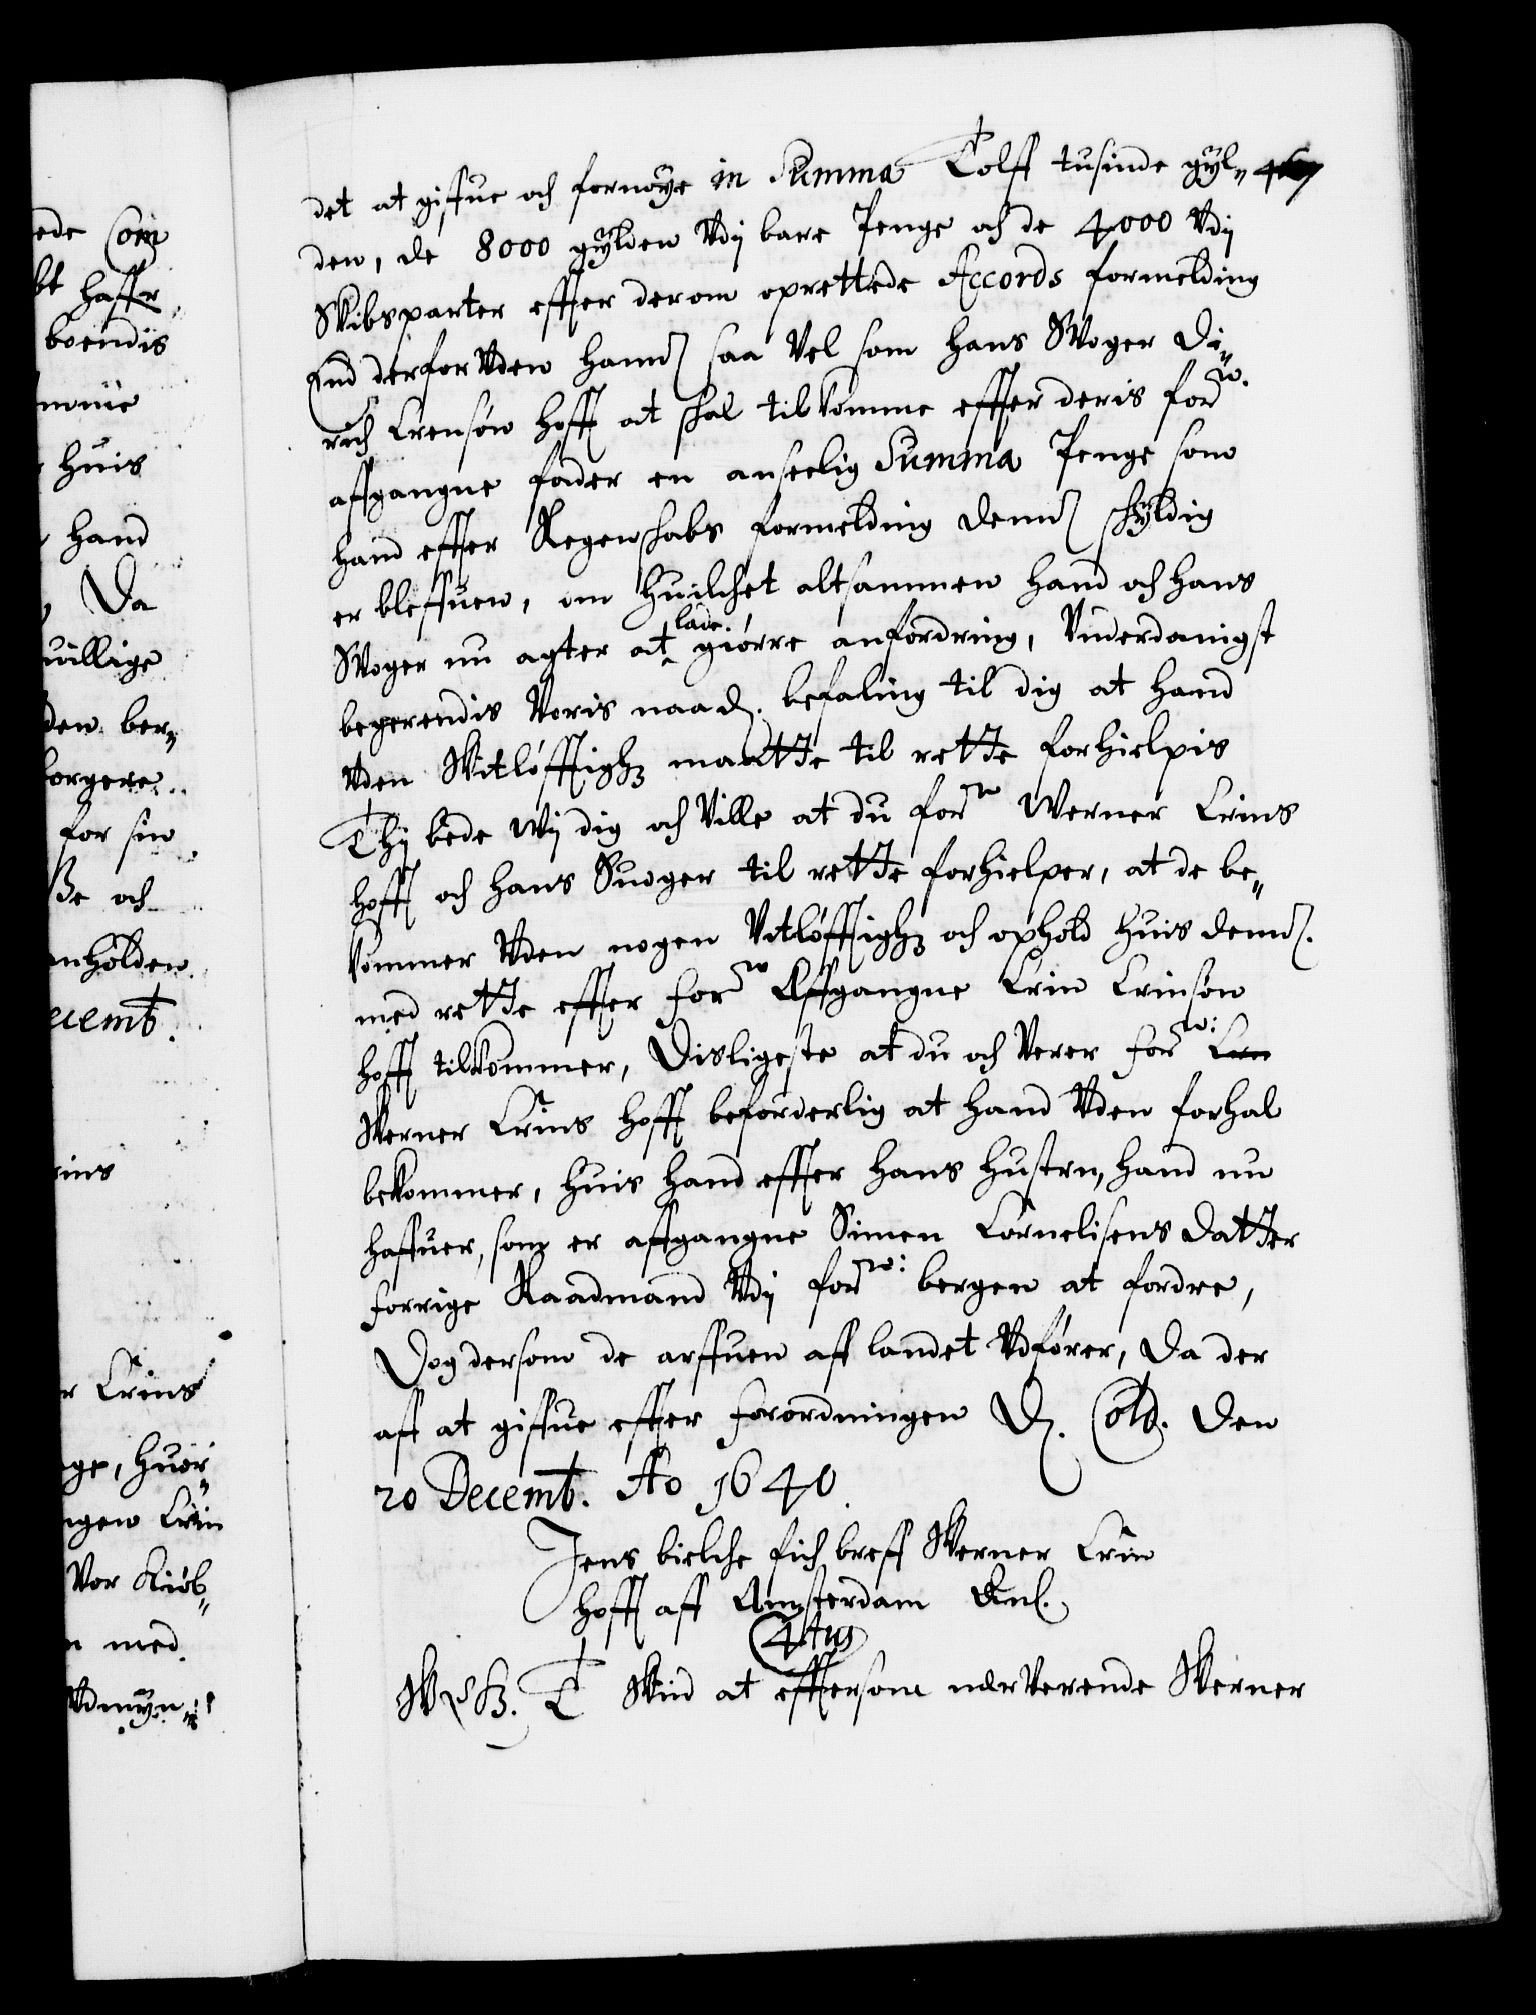 det at giffue och fornøye in Summa Tolff tusinde gyl„
den, de 8000 gylden Vdj bare Penge och de 4000 Vdj
Skibsparter effter derom oprettede Accords formelding
End derforVden hannd saa Vel som hans Swoger Di„
rich Crensøn Hoff at skal tilkomme effter deris forn.
affgangne fader en anseelig Summa Penge som
hand effter Regenskabs formelding dennd skyldig
er bleffuen, om huilchet altsammen hand och hans
Swoger nu agter at lade giørre anfordring, Vnderdanigst
begerendis Voris naad. befaling til dig at hand
Vden Witløfftighed maatte til rette forhielpis
Thj bede Wij dig och Ville at du forn Werner Crins
Hoff och hans Suoger til rette forhielper, at de be„
kommer Vden nogen Vitløfftighed och ophold huis dennd.
med rette effter forn Affgangne Crin Crinsøn
Hoff tilkommer, Disligeste at du och Verer forn: Crn
Werner Crins Hoff beforderlig at hand Vden forhal
bekommer, huis hand effter hans hustru, hand nu
haffuer, som er affgangne Simen Cornelisens datter
forrige Raadmand Vdj forn: bergen at fordre,
Dog dersom de arffuen aff landet Vdfører, Da der
aff at giffue effter forordningen D. Cold. den
20 Decemb. Ao 1640.
Jens bielche fich breff Werner Crin
Hoff aff Amsterdam Anl.
4tus
W G T Wiid at efftersom nerVerende Werner
ede Coin
bt haffr
boendis
huis
hand
Da
uillige
den ber„
borgere
for sin
och
nholden
ecemb.
rins
r Crins
ge, huor„
ngen Crin
Vor Kiøb„
n med